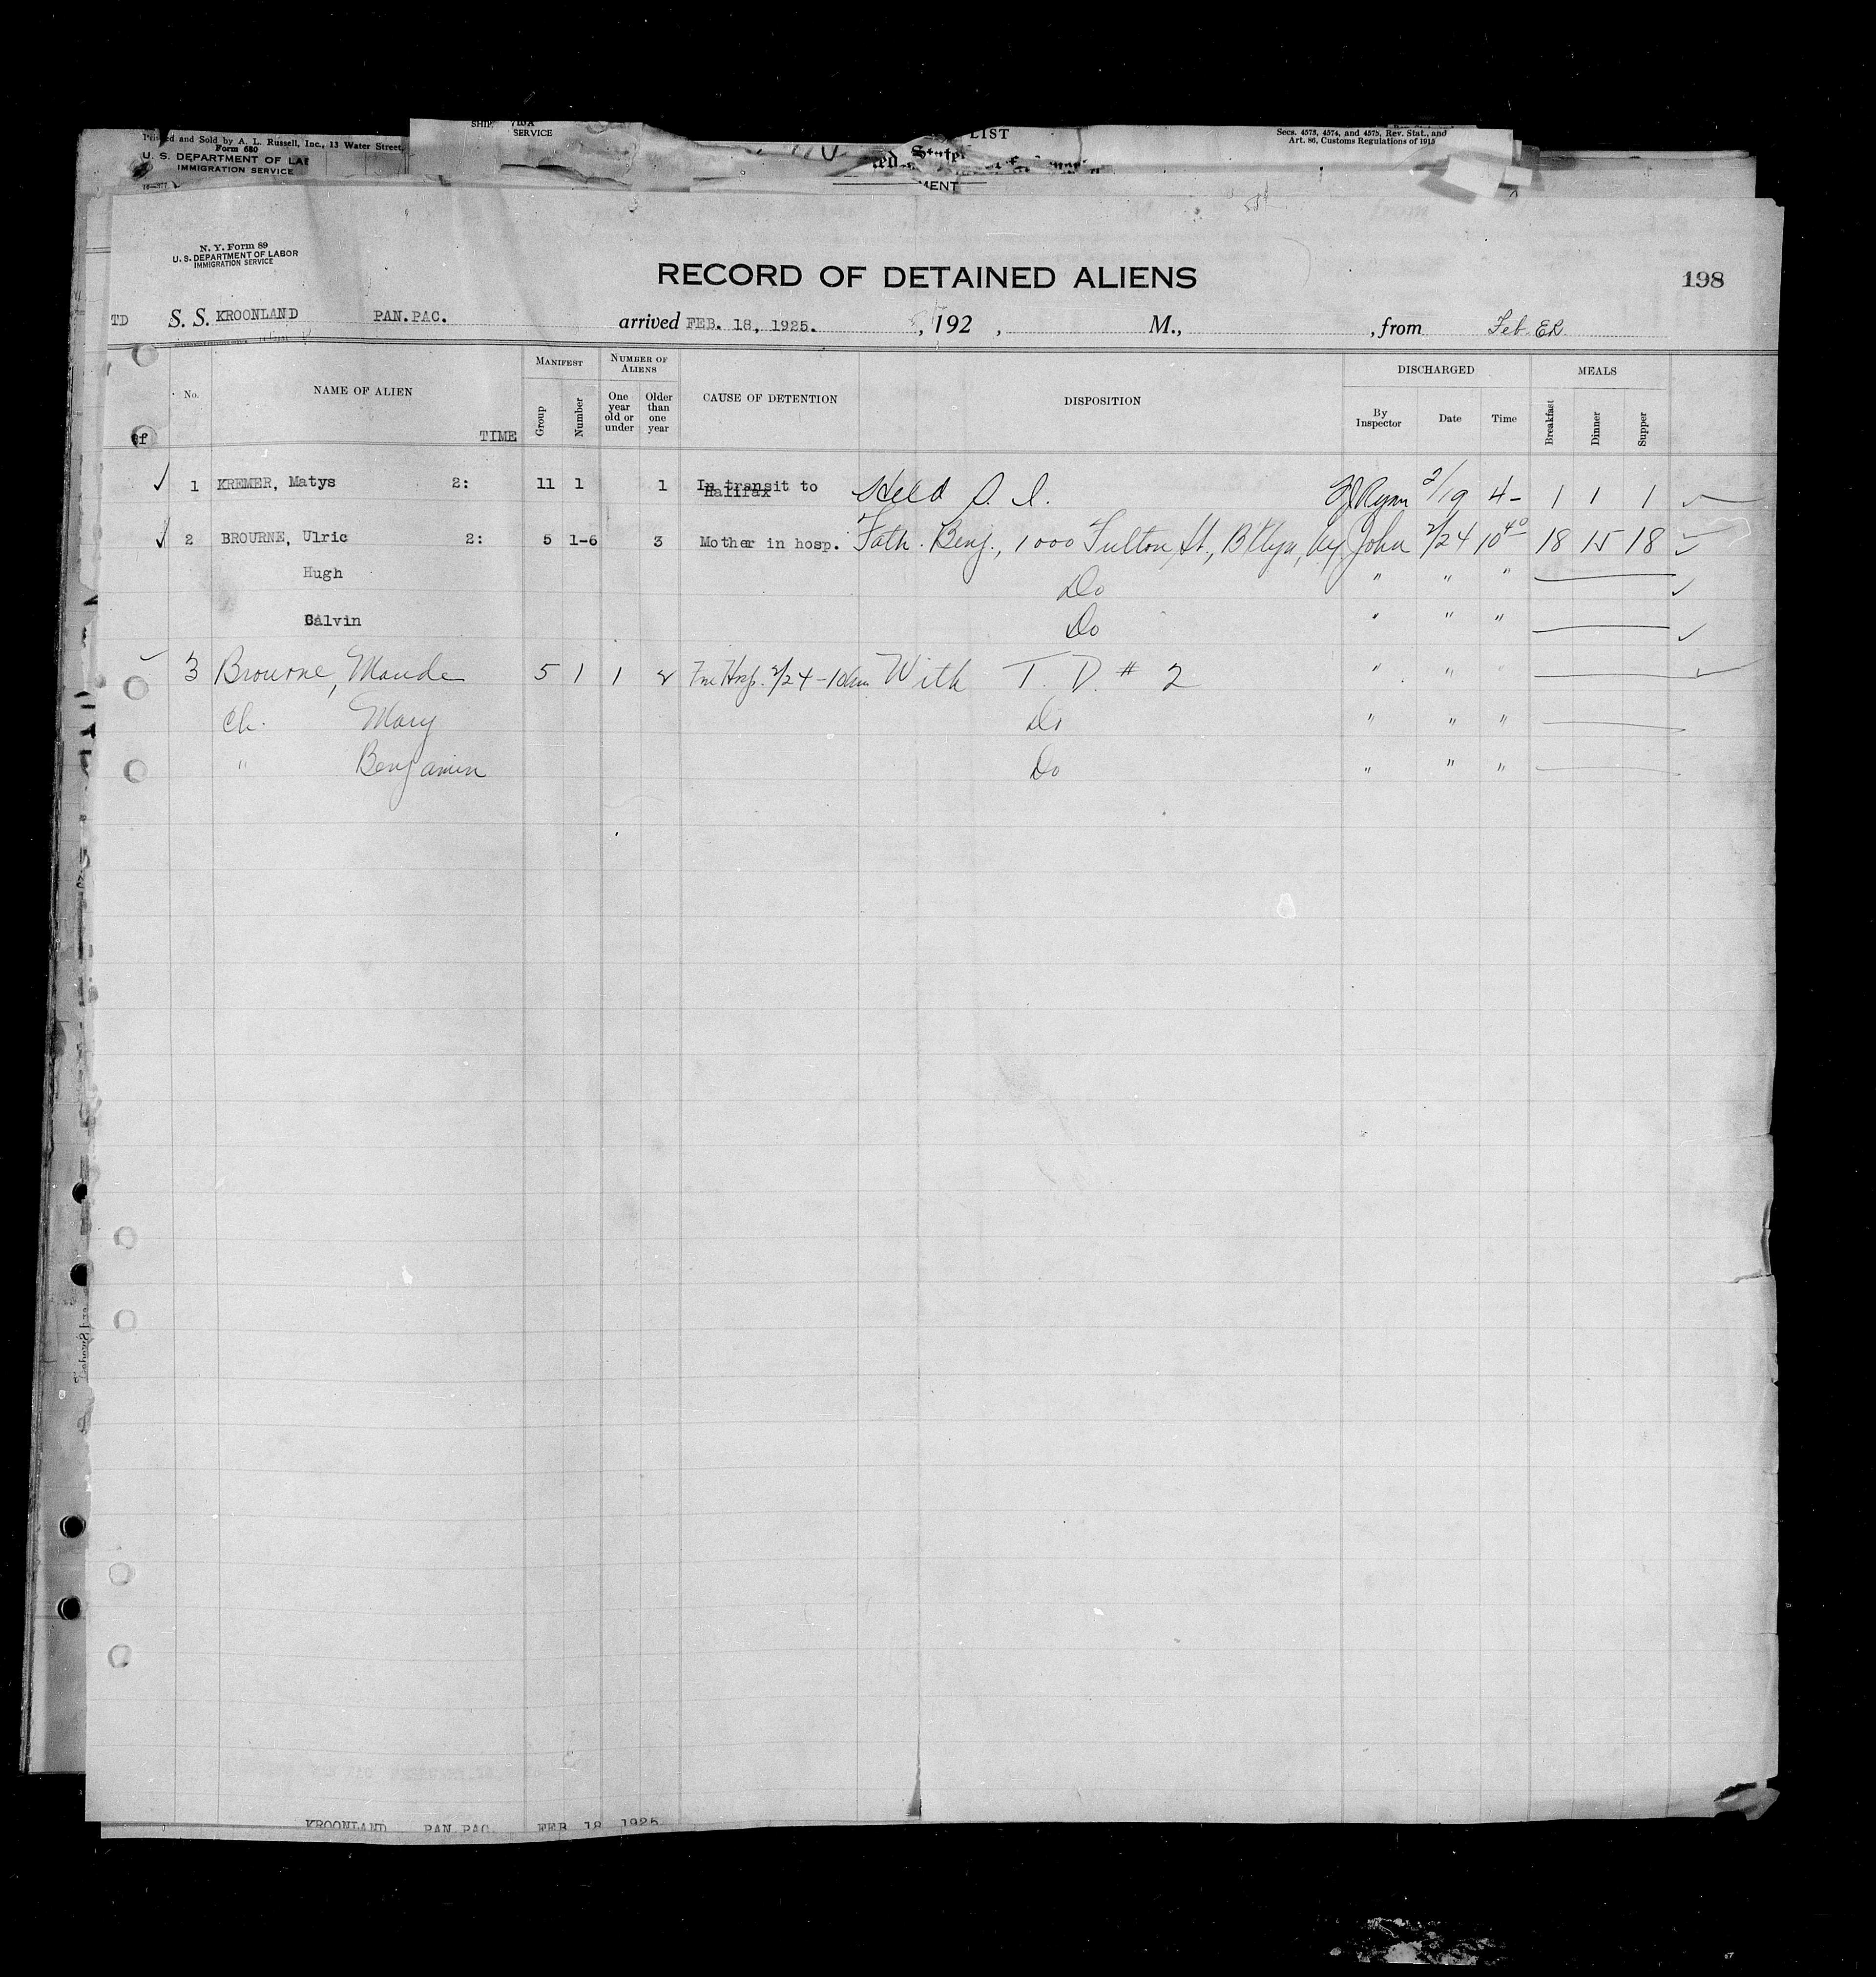 SHIP
SERVICE
LIST
Secs. 4573, 4574, and 4575, Rev. Stat., and
Art. 86, Customs Regulations of 1915
ed and Sold by A. L. Russell, Inc., 13 Water Street,
Form 680
U. S. DEPARTMENT OF LAB
IMMIGRATION SERVICE
MENT
N. Y. Form 89
U. S. DEPARTMENT OF LABOR
IMMIGRATION SERVICE
RECORD OF DETAINED ALIENS
198
TD S. S. KROONLAND PAN.PAC. arrived FEB. 18, 1925. , 192 , M., , from
No. NAME OF ALIEN TIME MANIFEST Group Number NUMBER OF ALIENS One year old or under Older than one year CAUSE OF DETENTION DISPOSITION DISCHARGED By Inspector Date Time MEALS Breakfast Dinner Supper
1 KREMER, Matys 2: 11 1 1 In transit to Halifax Held S. I. Ryan 2/19 4- 1 1 1
2 BROURNE, Ulric 2: 5 1-6 3 Mother in hosp. Fath. Benj., 1000 Fulton St., Bklyn, Ny John 2/24 10 40 18 15 18
Hugh Do " " "
Calvin Do " " "
3 Brourne, Maude 5 1 1 2 Fm Hosp. 2/24-10 am With T. D. # 2 " " "
Ch. Mary Do " " "
" Benjamin Do " " "
KROONLAND PAN.PAC. FEB 18 1925